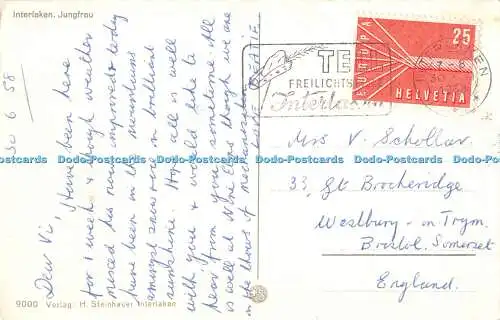 Interlaken. Jungfrau
30 6 58
Dear Vi, Have been here
for 1 week & though weather
missed has now improved & today
have been in the mountains
amongst snow & in brilliant
sunshine. Hope all is well
with you & would like to
hear from you sometime. All
is well at Nine Elms though we are
in the throes of modernisation
9000 Verlag: H. Steinhauer Interlaken
TE
FREILICHTS
Interlaken
EUROPA
25
HELVETIA
30
Mrs V. Schollar
33, Gt Brockeridge
Westbury-on Trym.
Bristol. Somerset
England.
Dodo-Postcards.com Dodo-Postcards.com Dodo-Postcards.com Dodo-Postcards.com